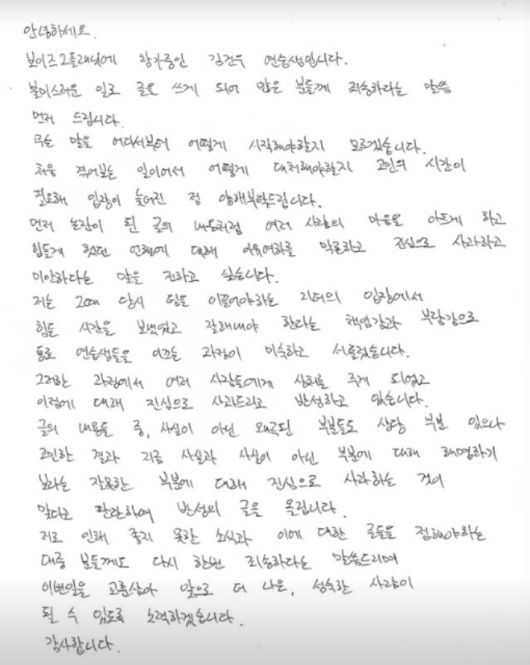 안녕하세요.
보이즈2플래닛에 참가중인 김건우 연습생입니다.
불미스러운 일로 글을 쓰게 되어 많은 분들께 죄송하다는 말씀
먼저 드립니다.
무슨 말을 어디서부터 어떻게 시작해야할지 모르겠습니다.
처음 겪어보는 일이어서 어떻게 대처해야할지 고민의 시간이
필요해 입장이 늦어진 점 양해부탁드립니다.
먼저 논란이 된 글의 내용처럼 여러 사람의 마음을 아프게 하고
힘들게 했던 언행에 대해 이유여하를 막론하고 진심으로 사과하고
미안하다는 말을 전하고 싶습니다.
저는 20대 당시 팀을 이끌어야하는 리더의 입장에서
힘든 시간을 보냈었고 잘해내야 한다는 책임감과 부담감으로
동료 연습생들을 이끄는 과정이 미숙하고 서툴렀습니다.
그러한 과정에서 여러 사람들에게 상처를 주게 되었고
이점에 대해 진심으로 사과드리고 반성하고 있습니다.
글의 내용들 중, 사실이 아닌 왜곡된 부분들도 상당 부분 있으나
고민한 결과 지금 사실과 사실이 아닌 부분에 대해 해명하기
보다는 잘못한 부분에 대해 진심으로 사과하는 것이
맞다고 판단하여 반성의 글을 올립니다.
저로 인해 좋지 못한 소식과 이에 대한 글들을 접해야하는
대중 분들께도 다시 한번 죄송하다는 말씀드리며
이번일을 교훈삼아 앞으로 더 나은, 성숙한 사람이
될 수 있도록 노력하겠습니다.
감사합니다.